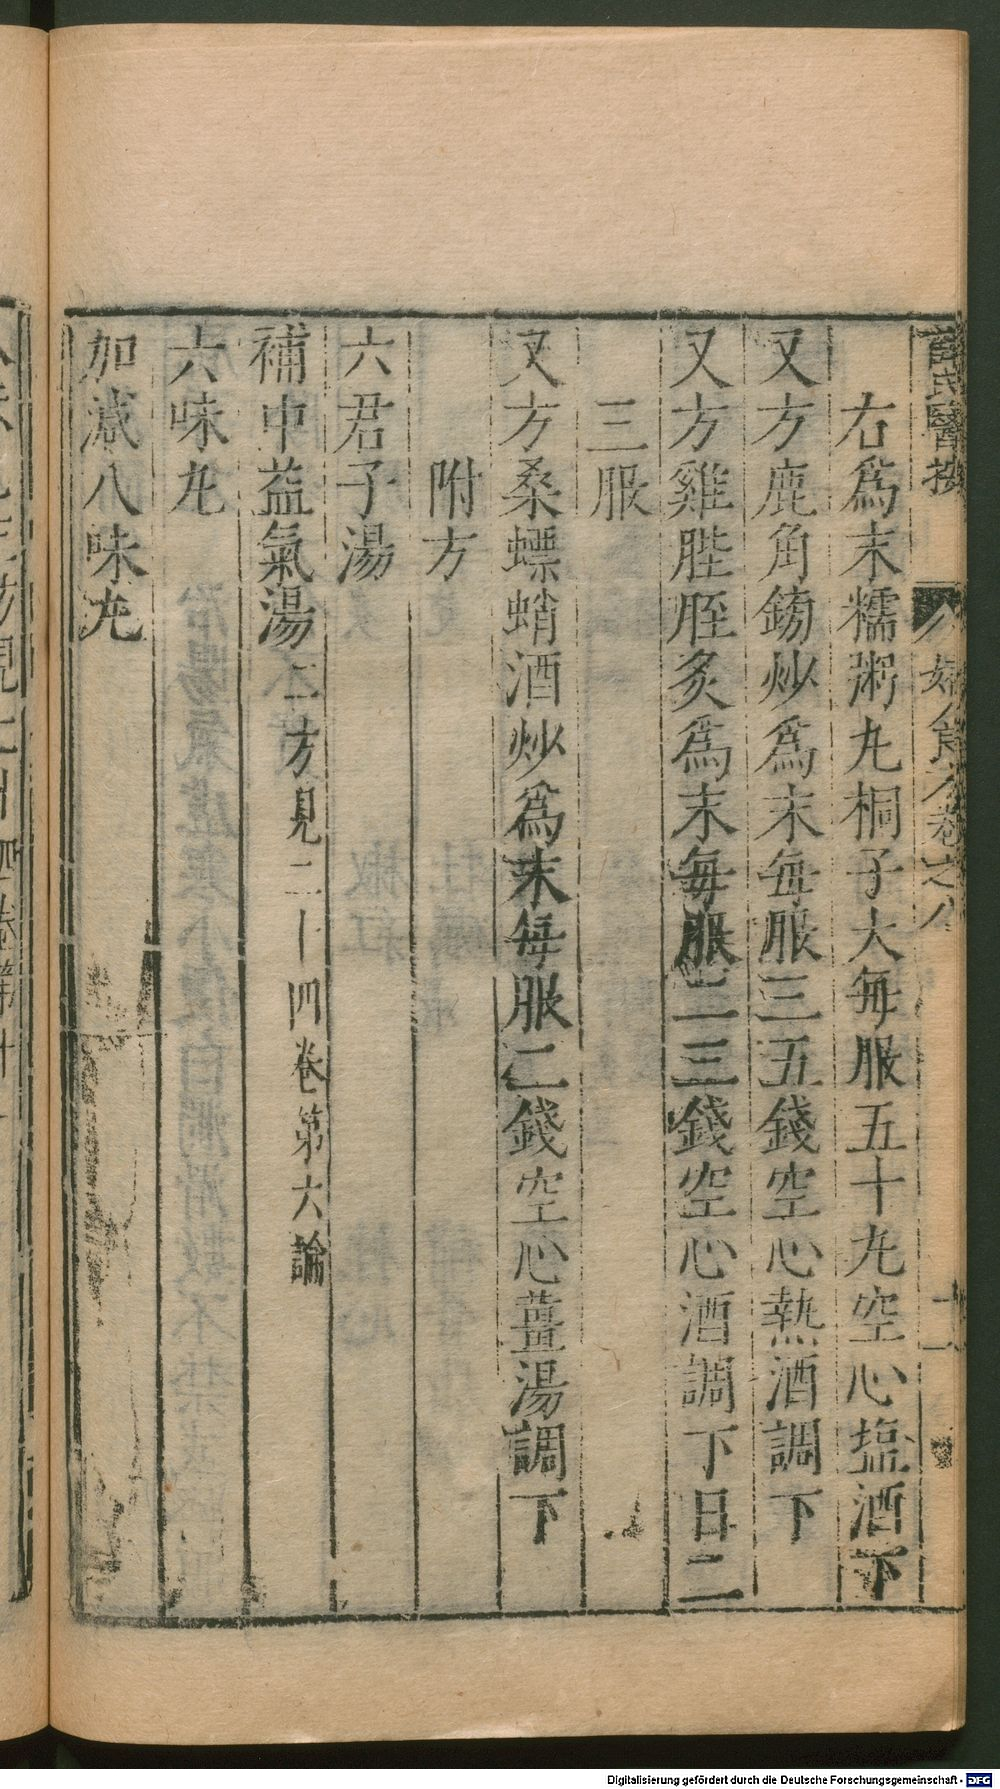 薛氏醫按
婦人良方卷之八
十一
右爲末糯粥丸桐子大每服五十丸空心塩酒下
又方鹿角鎊炒爲末每服三五錢空心熱酒調下
又方雞膍胵炙爲末每服二三錢空心酒調下日二
三服
又方桑螵蛸酒炒爲末每服二錢空心薑湯調下
附方
六君子湯
補中益氣湯二方見二十四卷第六論
六味丸
加減八味丸
Digitalisierung gefördert durch die Deutsche Forschungsgemeinschaft - DFG